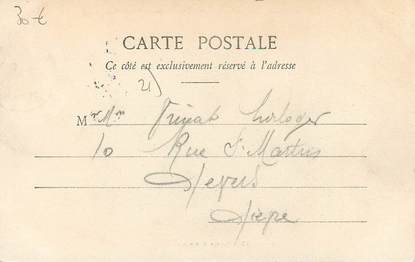 30 €
CARTE POSTALE
Ce côté est exclusivement réservé à l'adresse
21
M
10 Rue St Martin
Nevers
Nièvre